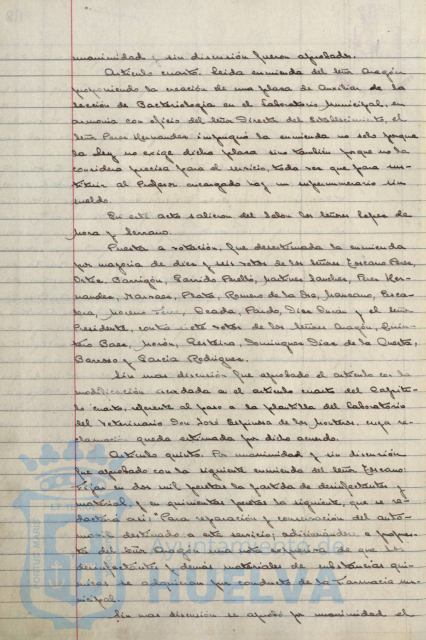 unanimidad y sin discusión fueron aprobados.
Artículo cuarto. Leida enmienda del Señor Aragón
proponiendo la creación de una plaza de Auxiliar de la
Sección de Bacteriología en el Laboratorio Municipal, en
armonía con oficio del Señor Director del Establecimiento, el
Señor Perez Hernandez impugnó la enmienda no solo porque
la Ley no exige dicha plaza sino también porque no la
considera precisa para el servicio, toda vez que para sus-
tituir al Profesor encargado hay un supernumerario sin
sueldo.
En este acto salieron del Salon los Señores Lopez de
Mora y Serrano.
Puesta a votación, fue desestimada la enmienda
por mayoría de diez y seis votos de los Señores Escano
Ortiz, Garrigón, Garrido Perelló, Martinez Sanchez, Perez Her-
nandez, Narvaez, Prats, Romero de la Manzano,
Moreno Oeada, Pardo, Diaz y el Señor
Presidente, contra siete votos de los Señores Aragón, Quin-
tero Baez, Morón, Dominguez Diaz de la Cuesta,
Barroso y García Rodriguez.
Sin mas discusión fue aprobado el artículo con la
modificación acordada en el artículo cuarto del Capítu-
lo cuarto, referente al paso a la plantilla del Laboratorio
del Veterinario Don José Espinosa de los Monteros, cuya re-
clamación queda estimada por dicho acuerdo.
Artículo quinto. Por unanimidad y sin discusión
fue aprobado con la siguiente enmienda del Señor Escano:
Fijar en dos mil pesetas la partida de desinfectantes y
material y en quinientas pesetas la siguiente, que se re-
dactará así: "Para reparación y conservación del autó-
movil destinado a este servicio; adicionandose a propues-
ta del Señor Aragón una nota expresiva de que los
desinfectantes y demás materiales de substancias quí-
micas se adquieran por conducto de la Farmacia mu-
nicipal.
Sin mas discusión se aprobó por unanimidad el
HUELVA